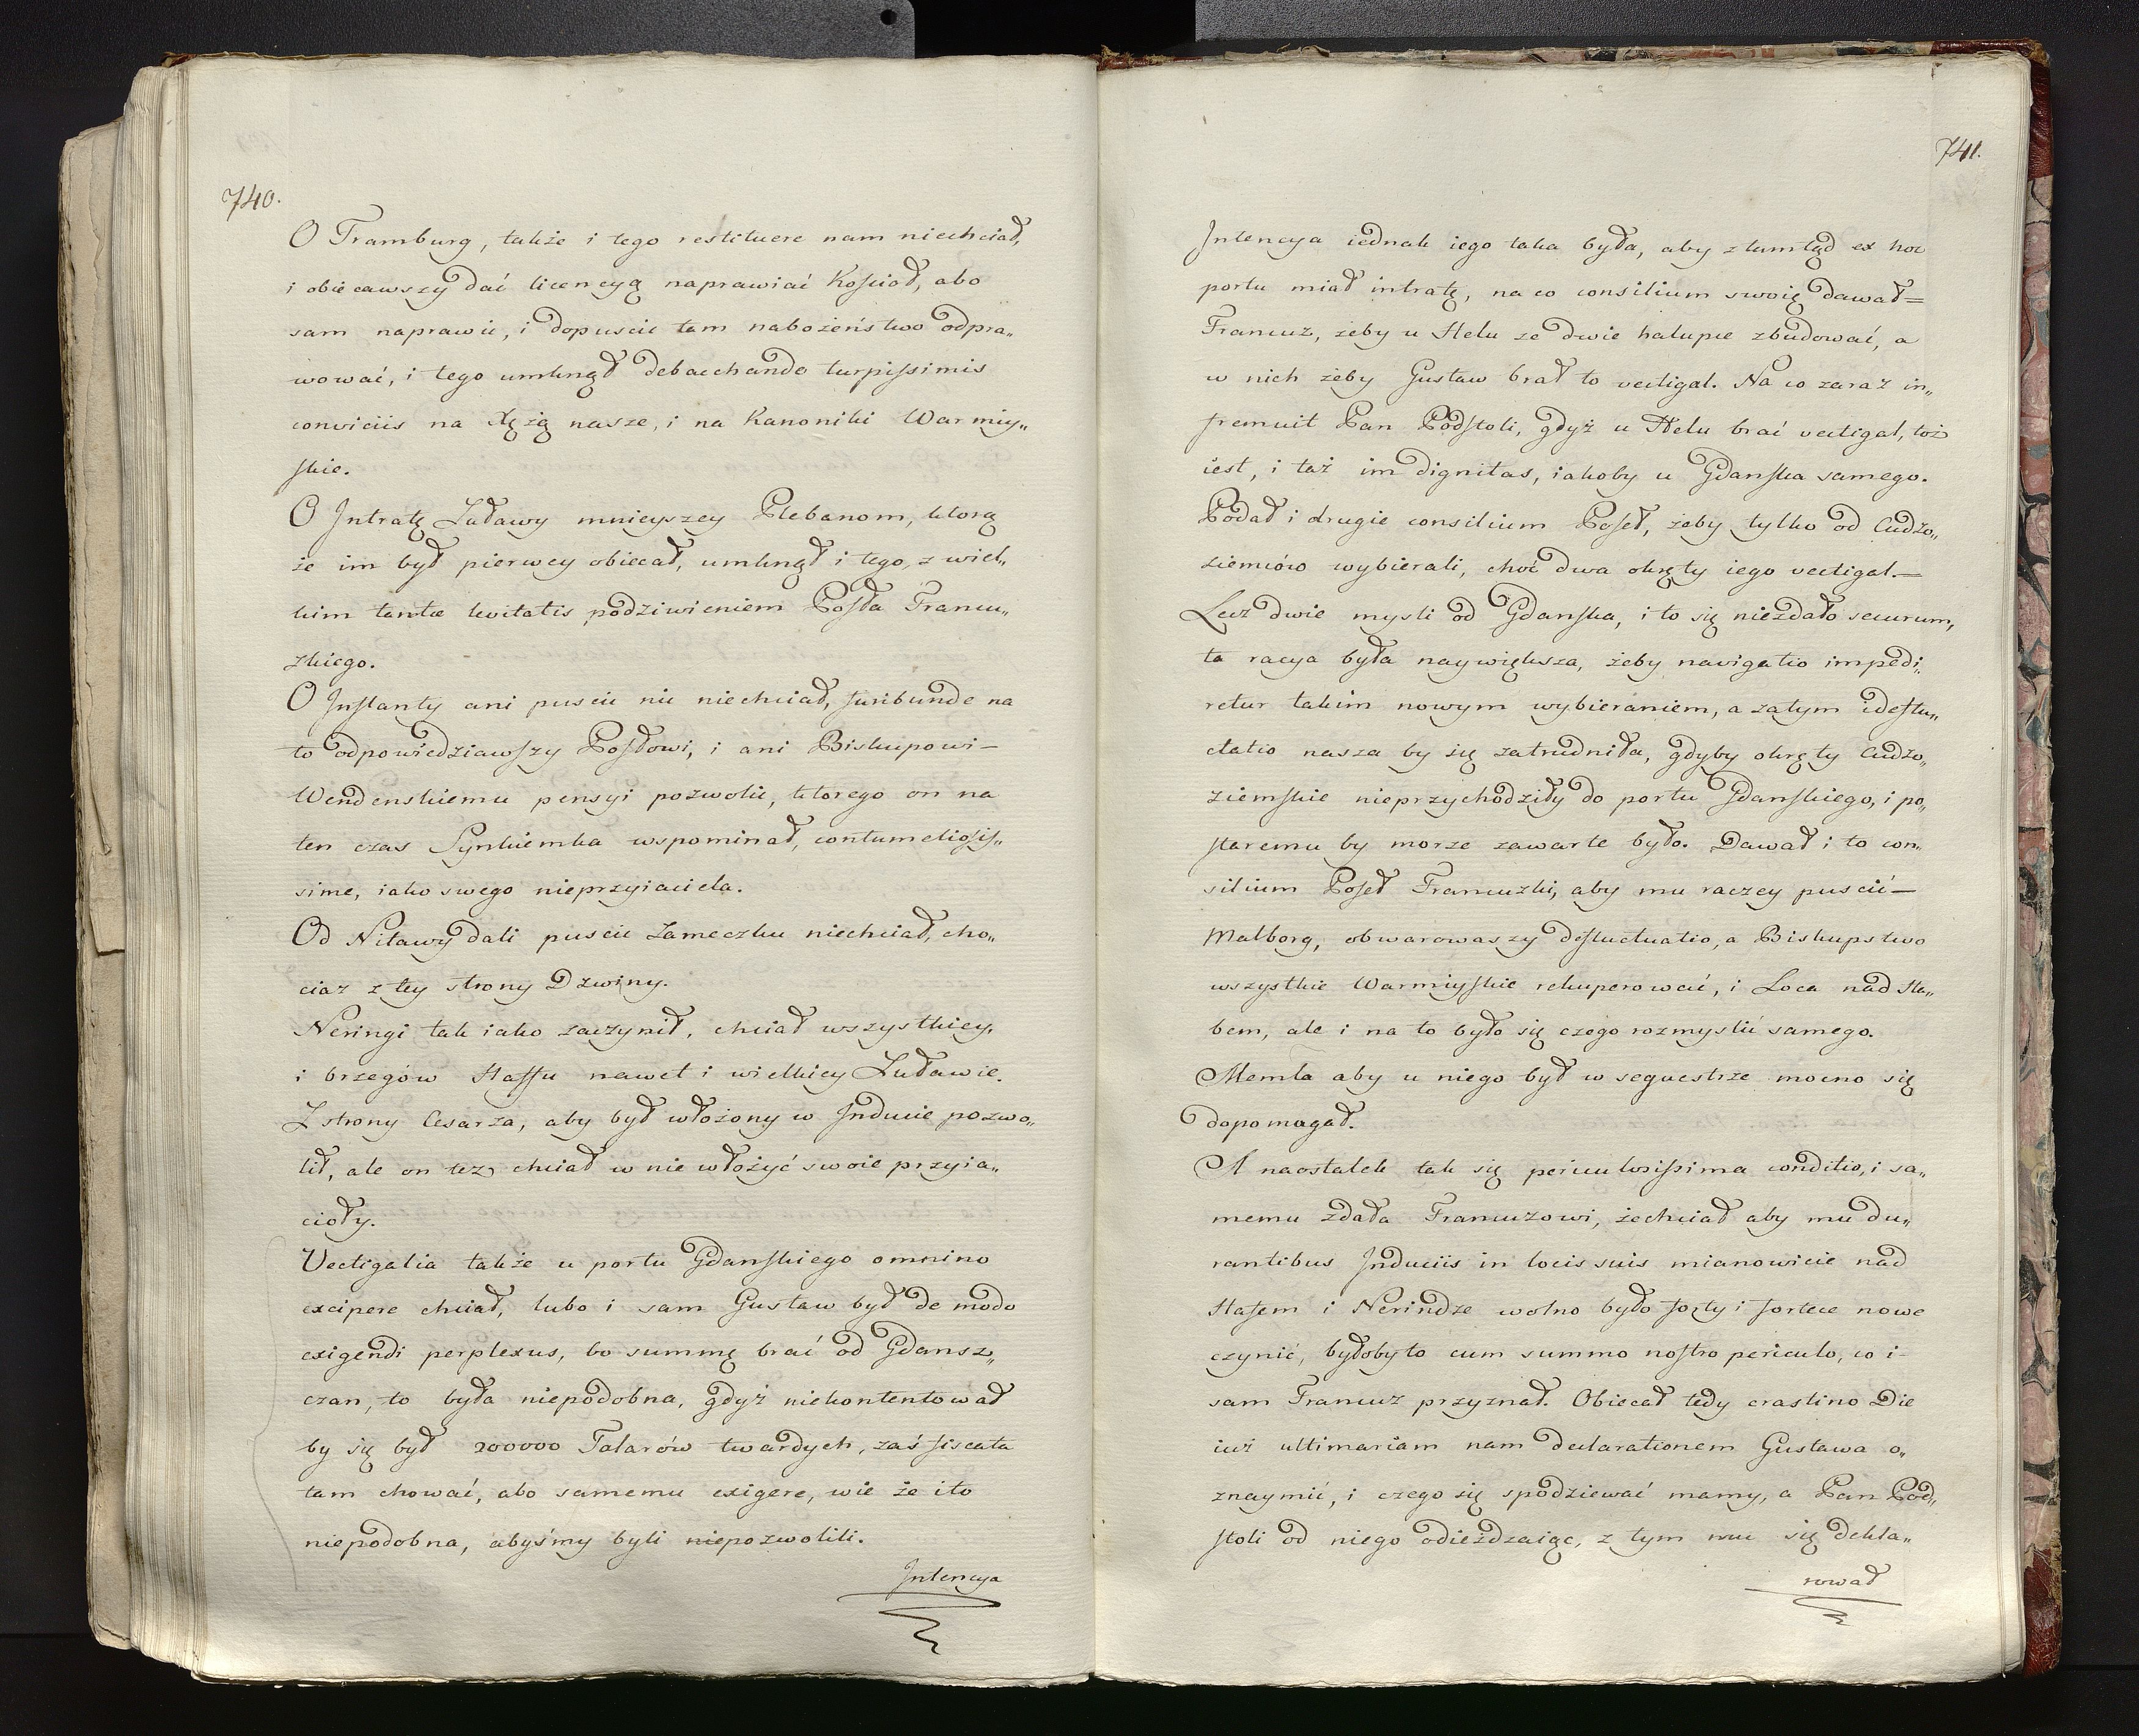 740.
O Framburg, także i tego restituere nam niechciał,
i obiecawszy dać licencyą naprawiać Kościoł, abo
sam naprawic, i dopuscic tam nabożeństwo odpra„
wować, i tego umknął debacchando turpissimis
conviciis na Xężą nasze, i na Kanoniki Warmiy„
skie.
O Intratę Żuławy mnieyszey Plebanom, ktorą
że im był pierwey obiecał, umknął i tego, z wiel„
kim tantæ levitatis podziwieniem Posła Francu„
zkiego.
O Inflanty ani puscic nic niechciał, furibunde na
to odpowiedziawszy Posłowi, i ani Biskupowi –
Wendenskiemu pensyi pozwolic, ktorego on na
ten czas Synkiemka wspominał, contumeliosis„
sime, iako swego nieprzyiaciela.
Od Nitawy dali puscic Zameczku niechciał, cho„
ciaz z tey strony Dzwiny.
Neringi tak iako zaczynił, chciał wszystkiey,
i brzegów Haffu nawet i wielkiey Żuławie.
Z strony Cesarza, aby był włożony w Inducie pozwo„
lił, ale on tez chciał w nie włożyć swoie przyia„
cioły.
Vectigalia także u portu Gdanskiego omnino
excipere chciał, lubo i sam Gustaw był de modo
exigendi perplexus, bo summę brać od Gdansz„
czan, to była niepodobna, gdyż niekontentował
by się był 200000 Talarów twardych, zaś fiscata
tam chować, abo samemu exigere, wie że i to
niepodobna, abyśmy byli niepozwolili.
Intencya
741.
Intencya iednak iego taka była, aby ztumtąd ex hoc
portu miał intratę, na co consilium swoię dawał =
Francuz, żeby u Helu ze dwie halupie zbudować, a
w nich żeby Gustaw brał to vectigal. Na co zaraz in„
fremuit Pan Podstoli, gdyż u Helu brać vectigal, toż
iest, i taż im dignitas, iakoby u Gdanska samego.
Podał i drugie consilium Poseł, żeby tylko od Cudzo„
ziemców wybierali, choć dwa okręty iego vectigal. –
Lecz dwie mysli od Gdanska, i to się niezdało securum,
ta racya była naywiększa, żeby navigatio impedi„
retur takim nowym wybieraniem, a zatym i defluc„
ctatio nasza by się zatrudniła, gdyby okręty Cudzo„
ziemskie nieprzychodziły do portu Gdanskiego, i po„
staremu by morze zawarte było. Dawał i to con„
silium Poseł Francuzki, aby mu raczey puscić –
Malborg, obwarowaszy defluctuatio, a Biskupstwo
wszystkie Warmiyskie rekuperować, i Loca nad Ha„
bem, ale i na to było się czego rozmyslić samego.
Memla aby u niego był w sequestrze mocno się
dopomagał.
A naostatek tak się periculosissima conditio, i sa„
memu zdała Francuzowi, żechciał aby mu du„
rantibus Induciis in locis suis mianowicie nad
Hafem i Nerindze wolno było forty i fortece nowe
czynić, byłoby to cum summo nostro periculo, co i –
sam Francuz przyznał. Obiecał tedy crastino Die
iuż ultimariam nam declarationem Gustawa o„
znaymić, i czego się spodziewać mamy, a Pan Pod„
stoli od niego odieżdzaiąc, z tym mu się dekla„
rował